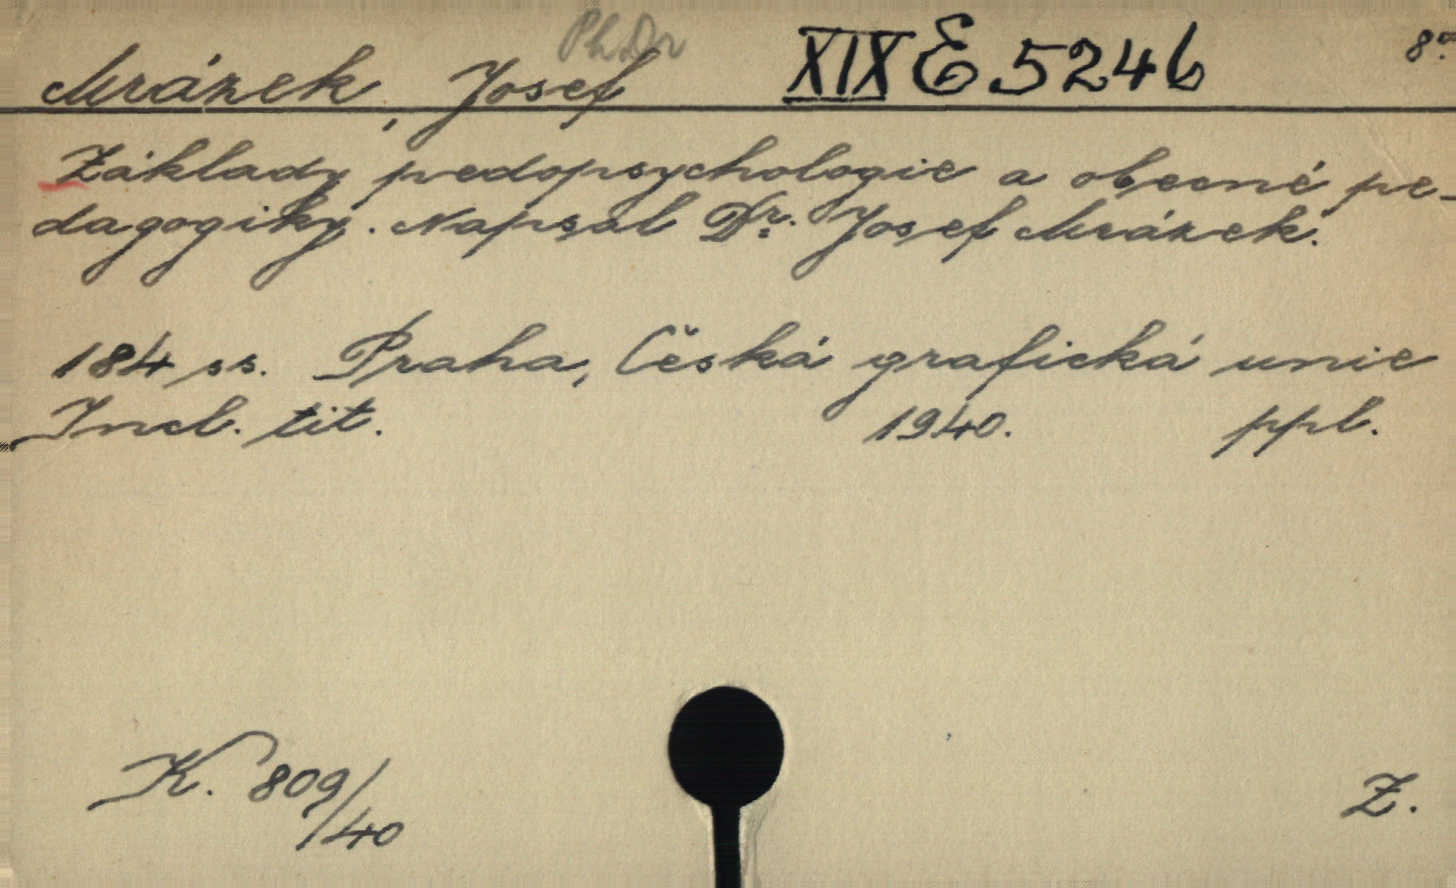 PhDr
Mrázek, Josef XIX E 5246 8°
Základy pedopsychologie a obecné pe-
dagogiky. Napsal Dr. Josef Mrázek.
184 ss. Praha, Česká grafická unie
Incl. tit. 1940. ppl.
K. 809/40 Z.